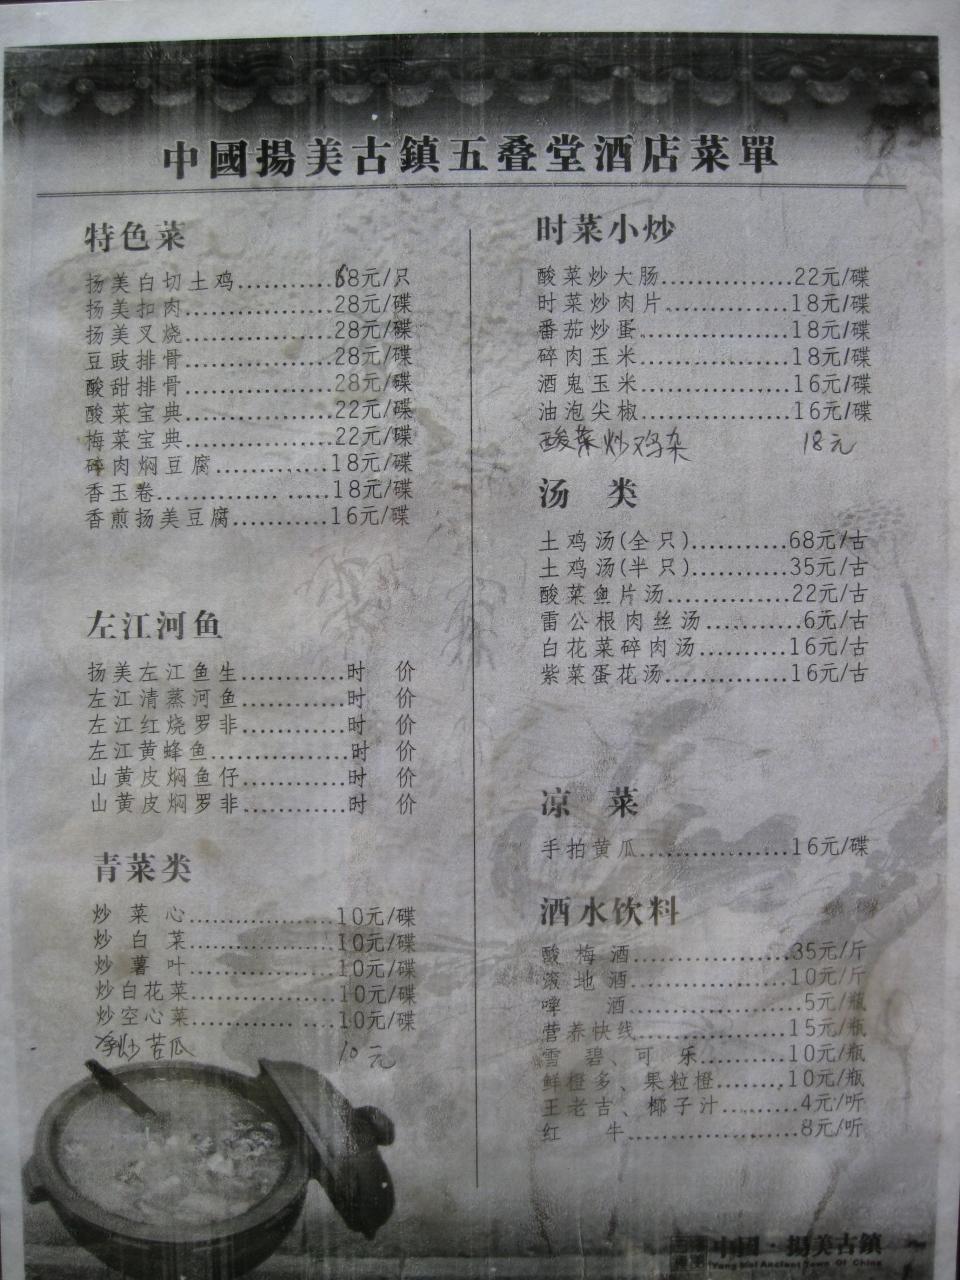 中國揚美古鎮五叠堂酒店菜單
特色菜
扬美白切土鸡..........68元/只
扬美扣肉..............28元/碟
扬美叉烧..............28元/碟
豆豉排骨..............28元/碟
酸甜排骨..............28元/碟
酸菜宝典..............22元/碟
梅菜宝典..............22元/碟
碎肉焖豆腐...........18元/碟
香玉卷............ .....18元/碟
香煎扬美豆腐..........16元/碟
左江河鱼
扬美左江鱼生............时 价
左江清蒸河鱼............时 价
左江红烧罗非............时 价
左江黄蜂鱼..............时 价
山黄皮焖鱼仔............时 价
山黄皮焖罗非............时 价
青菜类
炒菜心................10元/碟
炒白菜................10元/碟
炒薯叶................10元/碟
炒白花菜..............10元/碟
炒空心菜............ ....10元/碟
炒苦瓜 10元
时菜小炒
酸菜炒大肠............22元/碟
时菜炒肉片...........18元/碟
番茄炒蛋..............18元/碟
碎肉玉米..............18元/碟
酒鬼玉米..............16元/碟
油泡尖椒..............16元/碟
酸菜炒鸡杂 18元
汤 类
土鸡汤(全只)..........68元/古
土鸡汤(半只)..........35元/古
酸菜鱼片汤............22元/古
雷公根肉丝汤...........6元/古
白花菜碎肉汤..........16元/古
紫菜蛋花汤............16元/古
凉 菜
手拍黄瓜..............16元/碟
酒水饮料
酸梅酒................35元/斤
滚地酒................10元/斤
啤 酒.................5元/瓶
营养快线..............15元/瓶
雪 碧、可 乐..........10元/瓶
鲜橙多、果粒橙........10元/瓶
王老吉、椰子汁.........4元/听
红 牛.................8元/听
中國·揚美古鎮
Yang Mei Ancient Town Of China